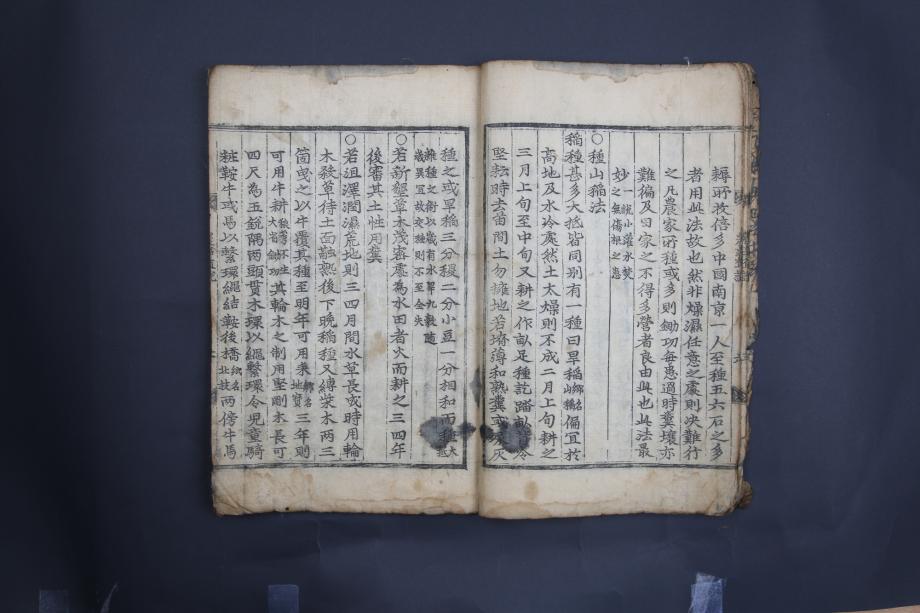 耨所收倍多中國南京一人至種五六石之多
者用此法故也然非燥濕任意之處則决難行
之凡農家所種或多則鋤功每患適時糞壤亦
難徧及田家之不得多營者良由此也此法最
妙一說小灌水焚之無傷根之患
○種山稻法
稻種甚多大抵皆同别有一種曰旱稻鄉名山稻偏宜於
高地及水冷處然土太燥則不成二月上旬耕之
三月上旬至中旬又耕之作畝足種訖踏畝背令
堅耘時去苗間土勿擁地若塉薄和熟糞或尿灰
種之或旱稻三分稷二分小豆一分相和而種大
雜種之術以歲有水旱九穀隨歲異宜故交種則不至全失
○若新墾草木茂密處爲水田者火而耕之三四年
後審其土性用糞
○若沮澤潤濕荒地則三四月間水草長成時用輪
木殺草待土面融熟後下晚稻種又縛柴木兩三
箇曳之以牛覆其種至明年可用耒鄉名地寶三年則
可用牛耕其輪木之制用堅剛木長可
四尺爲五銳隅兩頭貫木環以繩繫環令兒童騎
粧鞍牛或馬以繫環繩結鞍後橋鄉名北枝兩傍牛馬